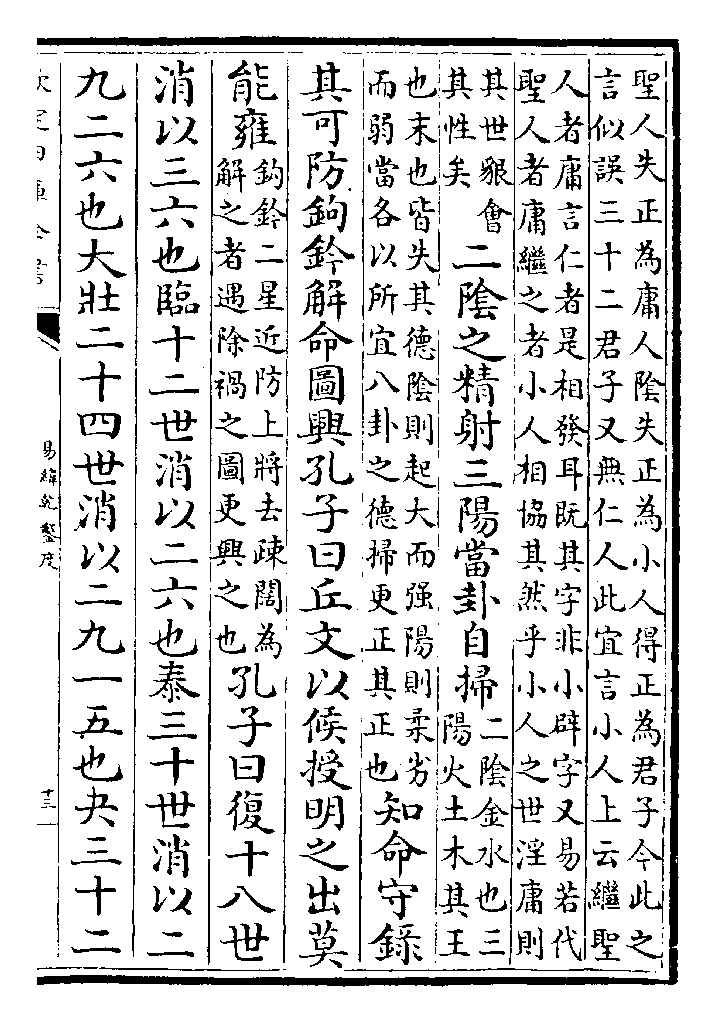 聖人失正為庸人陰失正為小人得正為君子今此之
言似誤三十二君子又無仁人此宜言小人上云繼聖
人者庸言仁者是相發耳既其字非小辟字又易若代
聖人者庸繼之者小人相協其然乎小人之世淫庸則
其世貇會
其性矣
二陰之精射三陽當卦自掃
二陰金水也三
陽火土木其王
也末也皆失其德陰則起大而强陽則柔劣
而弱當各以所宜八卦之德掃更正其正也
知命守錄
其可防鉤鈐解命圖興孔子曰丘文以候授明之出莫
能雍
鈎鈐二星近防上將去疎闊為
解之者遇除禍之圖更興之也
孔子曰復十八世
消以三六也臨十二世消以二六也泰三十世消以二
九二六也大壯二十四世消以二九一五也夬三十二
欽定四庫全書
易緯乾鑿度
十三